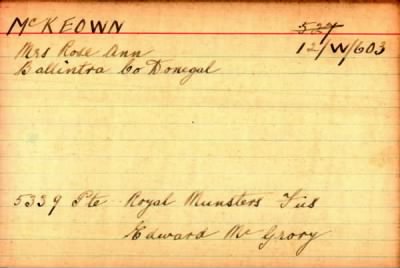 McKEOWN 527
Mrs Rose Ann 12/W/603
Ballintra Co Donegal
5339 Pte Royal Munsters Fus
Edward Mc Grory